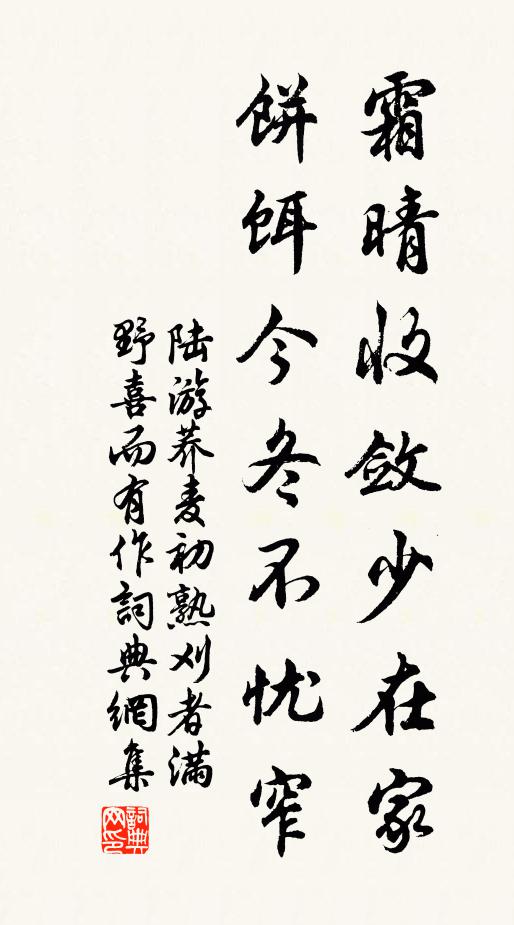 霜晴收敛少在家
餅餌今冬不忧窄
陆游荞麦初熟刈者滿
野喜而有作詞典網集
詞典
网印